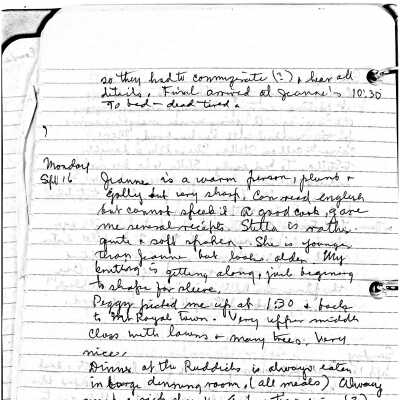 so they had to commiserate (?), hear all
details. Finall arrived at Jeanne's 10:30
To bed - dead tired.
Monday
Sept 16 Jeanne is a warm person, plump +
jolly but very sharp. Can read english
but cannot speak it. A good cook, gave
me several receipts. Stella is rather
quite + soft spoken. She is younger
than Jeanne but looks older. My
knitting is getting along, just beginning
to shape for sleeve.
Peggy picked me up at 1:30 + back
to Mt Royal Town. Very upper middle
class with lawns + many trees. Very
nice.
Dinner at the Ruddicks is always eaten
in large dinning room, (all meals). Always